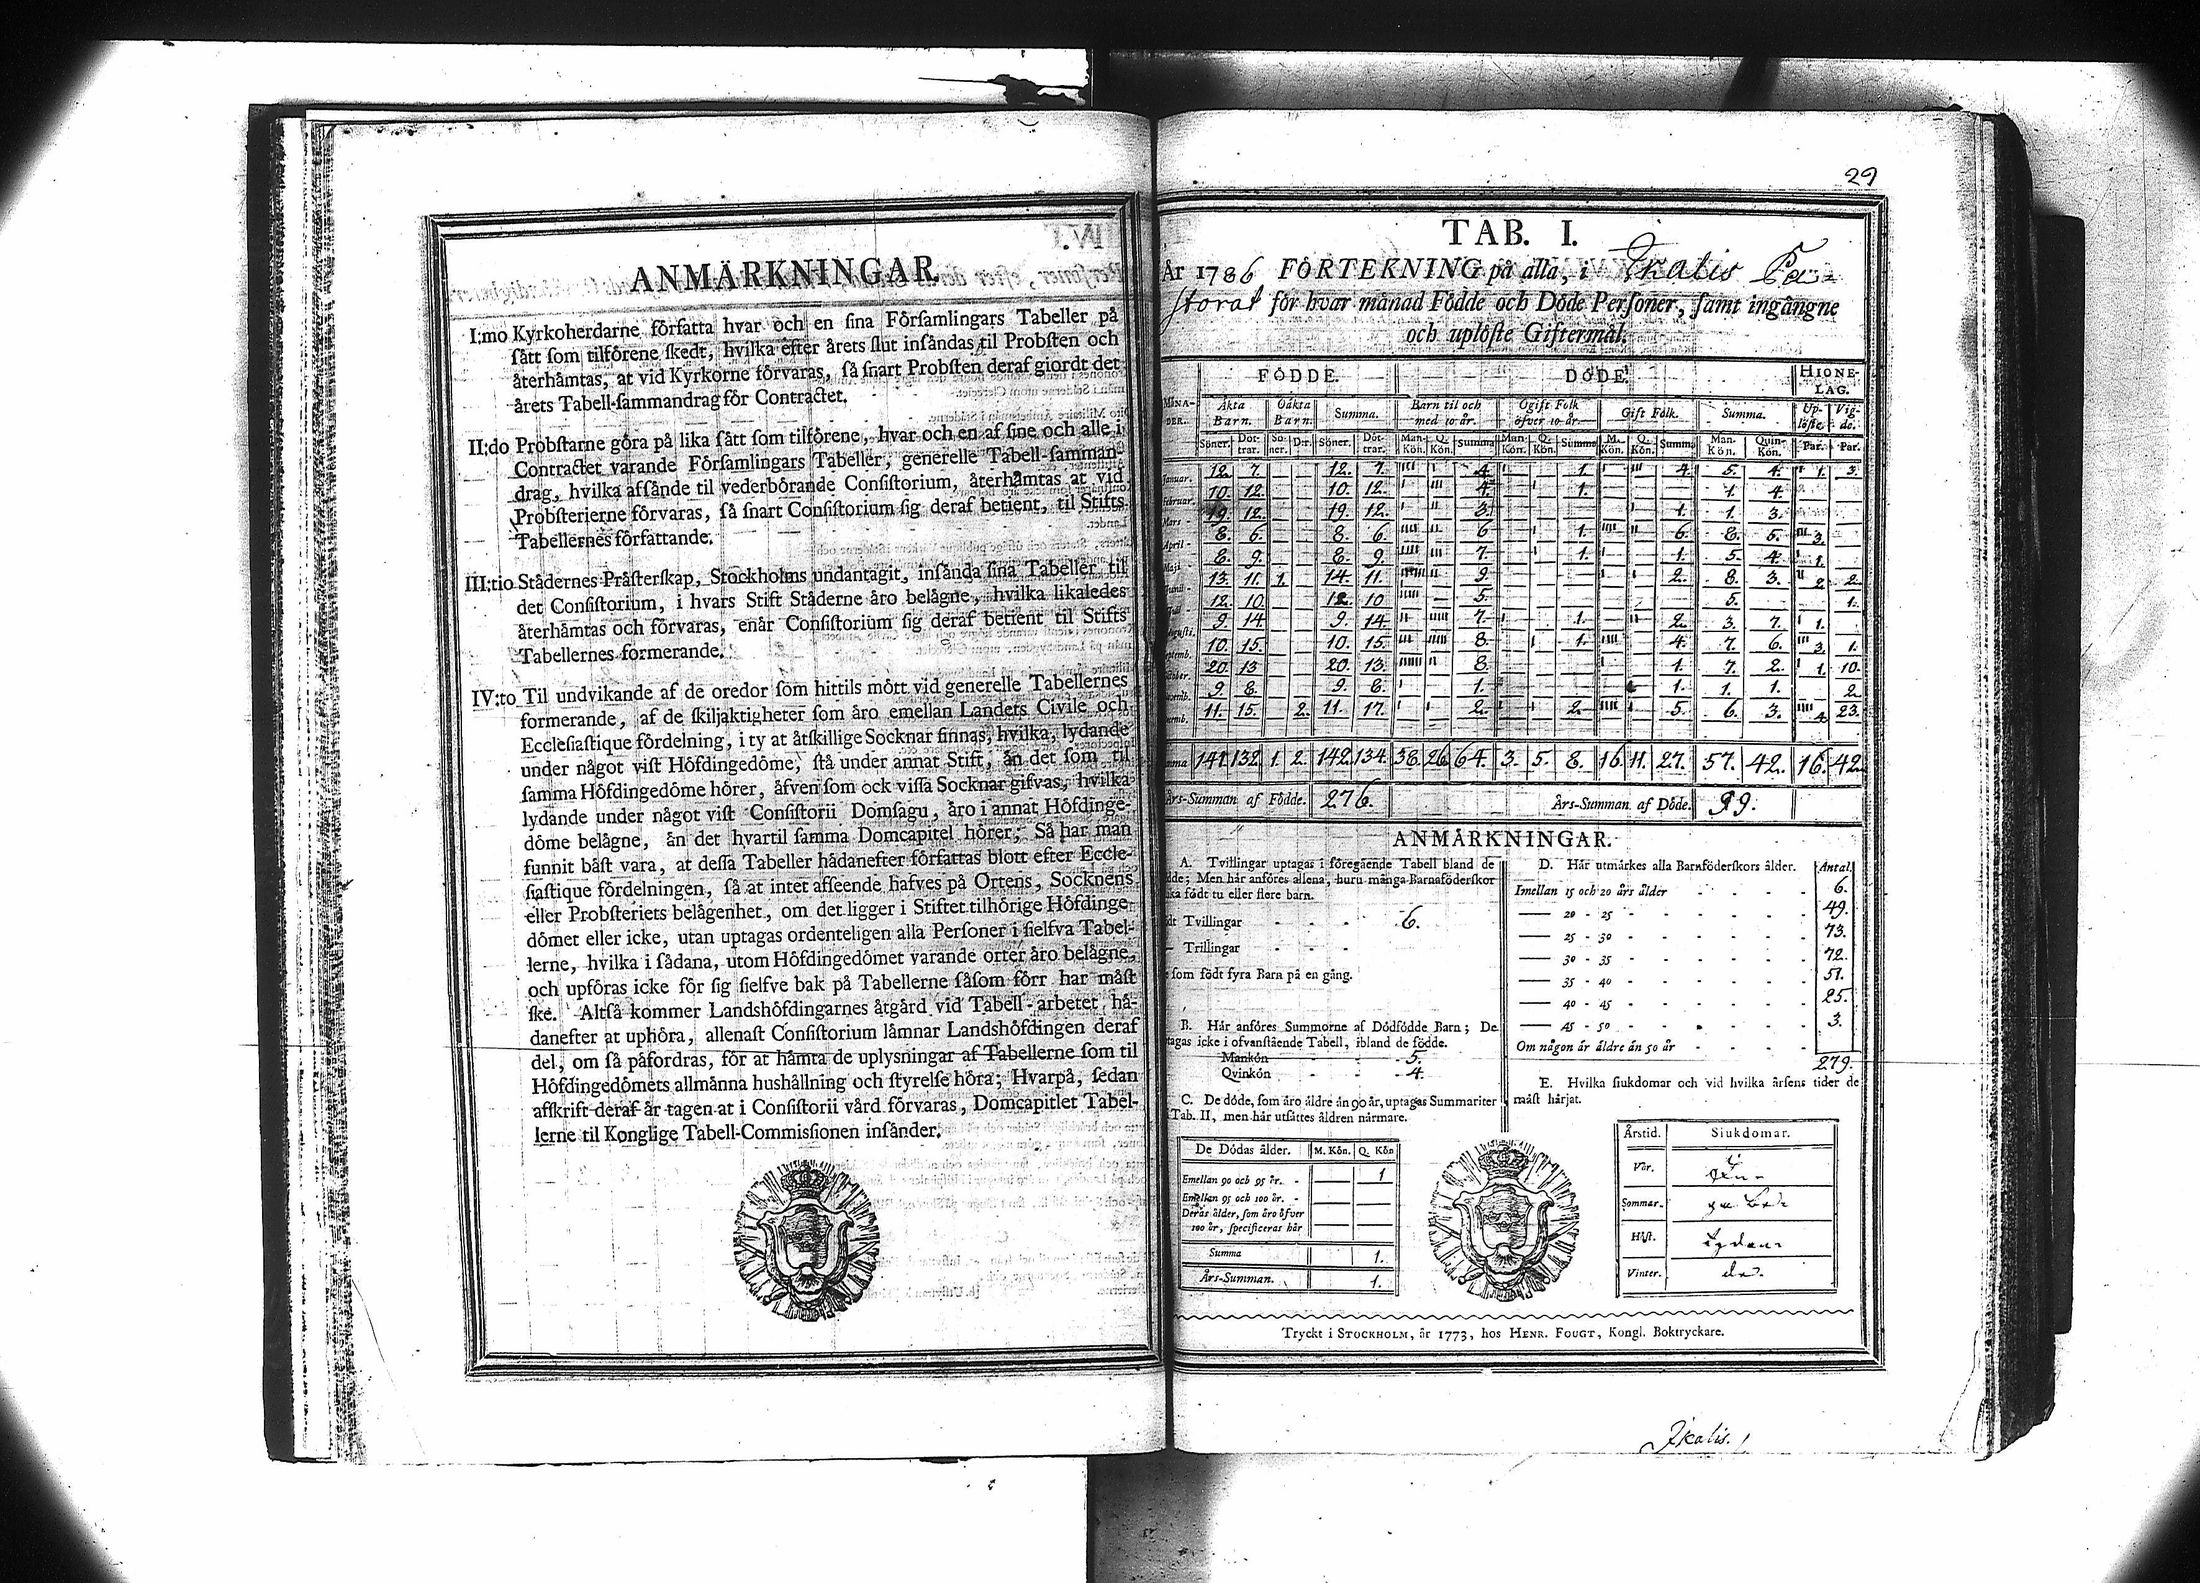 ANMÄRKNINGAR.
I:mo Kyrkoherdarne författa hvar och en sina Församlingars Tabeller på
sått som tilförene skedt, hvilka efter årets slut insåndas til Probsten och
återhämtas, at vid Kyrkorne förvaras, så snart Probsten deraf giordt det
årets Tabell-sammandrag för Contractet.
II:do Probstarne göra på lika sått som tilförene, hvar och en af sine och alle i
Contractet varande Församlingars Tabeller, generelle Tabell-samman-
drag, hvilka afsånde til vederbörande Consistorium, återhåmtas at vid
Probsterierne förvaras, så snart Consistorium sig deraf betient, til Stifts
Tabellernes författande.
III:tio Städernes Pråsterskap, Stockholms undantagit, insånda sina Tabeller til
det Consistorium, i hvars Stift Ståderne åro belågne, hvilka likaledes
återhåmtas och förvaras, enår Consistorium sig deraf betient til Stifts
Tabellernes formerande.
IV:to Til undvikande af de oredor som hittils mött vid generelle Tabellernes
formerande, af de skiljaktigheter som åro emellan Landets Civile och
Ecclesiastique fördelning, i ty at åtskillige Socknar finnas, hvilka, lydande
under något vist Höfdingedöme, stå under annat Stift, ån det som til
samma Höfdingedöme hörer, åfven som ock vissa Socknar gifvas, hvilka
lydande under något vist Consistorii Domsagu, åro i annat Höfdinge-
döme belågne, ån det hvartil samma Domcapitel hörer; Så har man
funnit båst vara, at dessa Tabeller hådanefter författas blott efter Eccle-
siastique fördelningen, så at intet afseende hafves på Ortens, Socknens
eller Probsteriets belågenhet, om det ligger i Stiftet tilhörige Höfdinge-
dömet eller icke, utan uptagas ordenteligen alla Personer i sielfva Tabel-
lerne, hvilka i sådana, utom Höfdingedömet varande orter åro belågne,
och upföras icke för sig sielfve bak på Tabellerne såsom förr har måst
ske. Altså kommer Landshöfdingarnes åtgård vid Tabell-arbetet hå-
danefter at uphöra, allenast Consistorium låmnar Landshöfdingen deraf
del, om så påfordras, för at håmta de uplysningar af Tabellerne som til
Höfdingedömets allmånna hushållning och styrelse höra; Hvarpå, sedan
afskrift deraf år tagen at i Consistorii vård förvaras, Domcapitlet Tabel-
lerne til Konglige Tabell-Commissionen insånder.
29
TAB. I.
År 1786 FÖRTEKNING på alla, i Ikalis Pa-
storat för hvar månad Födde och Döde Personer, samt ingångne
och uplöste Giftermål.
FÖDDE. DÖDE. HIONE-LAG.
MÅNA-DER. Äkta Barn. Oäkta Barn. Summa. Barn til och med 10 år. Ogift Folk öfver 10 år. Gift Folk. Summa. Up-löste. Vig-de.
Söner. Döt-trar. Sö-ner. D:r. Söner. Döt-trar. Man-Kön. Q. Kön. Summa Man-Kön. Q. Kön. Summa M. Kön. Q. Kön. Summa Man-Kön. Quin-Kön. Par. Par.
Januar. 12. 7. 12. 7. 4. 1. 4. 5. 4. 1. 3.
Februar. 10. 12. 10. 12. 4. 1. 1. 4.
Mars 19. 12. 19. 12. 3. 1. 1. 3.
April 8. 6. 8. 6. 6 1. 6. 8. 5. 3.
Maji 8. 9. 8. 9. 7. 1. 1. 5. 4. 1.
Junii 13. 11. 1. 14. 11. 9. 2. 8. 3. 2. 2.
12. 10. 12. 10 5. 5. 1.
9. 14. 9. 14. 7. 1. 2. 3. 7. 1.
10. 15. 10. 15. 8. 1. 4. 7. 6. 3. 1.
20. 13 20. 13. 8. 1. 7. 2. 1. 10.
9. 8. 9. 8. 1. 1. 1. 1. 2.
11. 15. 2. 11. 17. 2. 2. 5. 6. 3. 4. 23.
141. 132. 1. 2. 142. 134. 38. 26. 64. 3. 5. 8. 16. 11. 27. 57. 42. 16. 42.
Års-Summan af Födde. 276. Års-Summan af Döde. 99.
ANMÄRKNINGAR.
A. Tvillingar uptagas i föregående Tabell bland de
; Men hår anföres allena, huru många Barnaföderskor
födt tu eller flere barn.
Tvillingar 6.
Trillingar
som födt fyra Barn på en gång.
B. Hår anföres Summorne af Dödfödde Barn; De
tagas icke i ofvanstående Tabell, ibland de födde.
Mankön 5.
Qvinkön 4.
C. De döde, som åro åldre ån 90 år, uptagas Summariter
Tab. II, men hår utsåttes åldren nårmare.
De Dödas ålder. M. Kön. Q. Kön
Emellan 90 och 95 år. 1
Emellan 95 och 100 år.
Deras ålder, som åro öfver
100 år, specificeras hår
Summa 1.
Års-Summan. 1.
D. Hår utmårkes alla Barnföderskors ålder. Antal.
Imellan 15 och 20 års ålder 6.
20 - 25 49.
25 - 30 73.
30 - 35 72.
35 - 40 51.
40 - 45 25.
45 - 50 3.
Om någon är åldre än 50 år
279.
E. Hvilka siukdomar och vid hvilka årsens tider de
måst hårjat.
Årstid. Siukdomar.
Vår.
Sommar.
Höst.
Vinter.
Tryckt i STOCKHOLM, år 1773, hos HENR. FOUGT, Kongl. Boktryckare.
Ikalis.